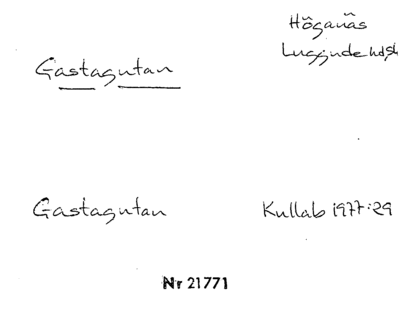 Höganäs
Luggude hdsk
Gastagutan
Gastagutan Kullab 1977:29
Nr 21771